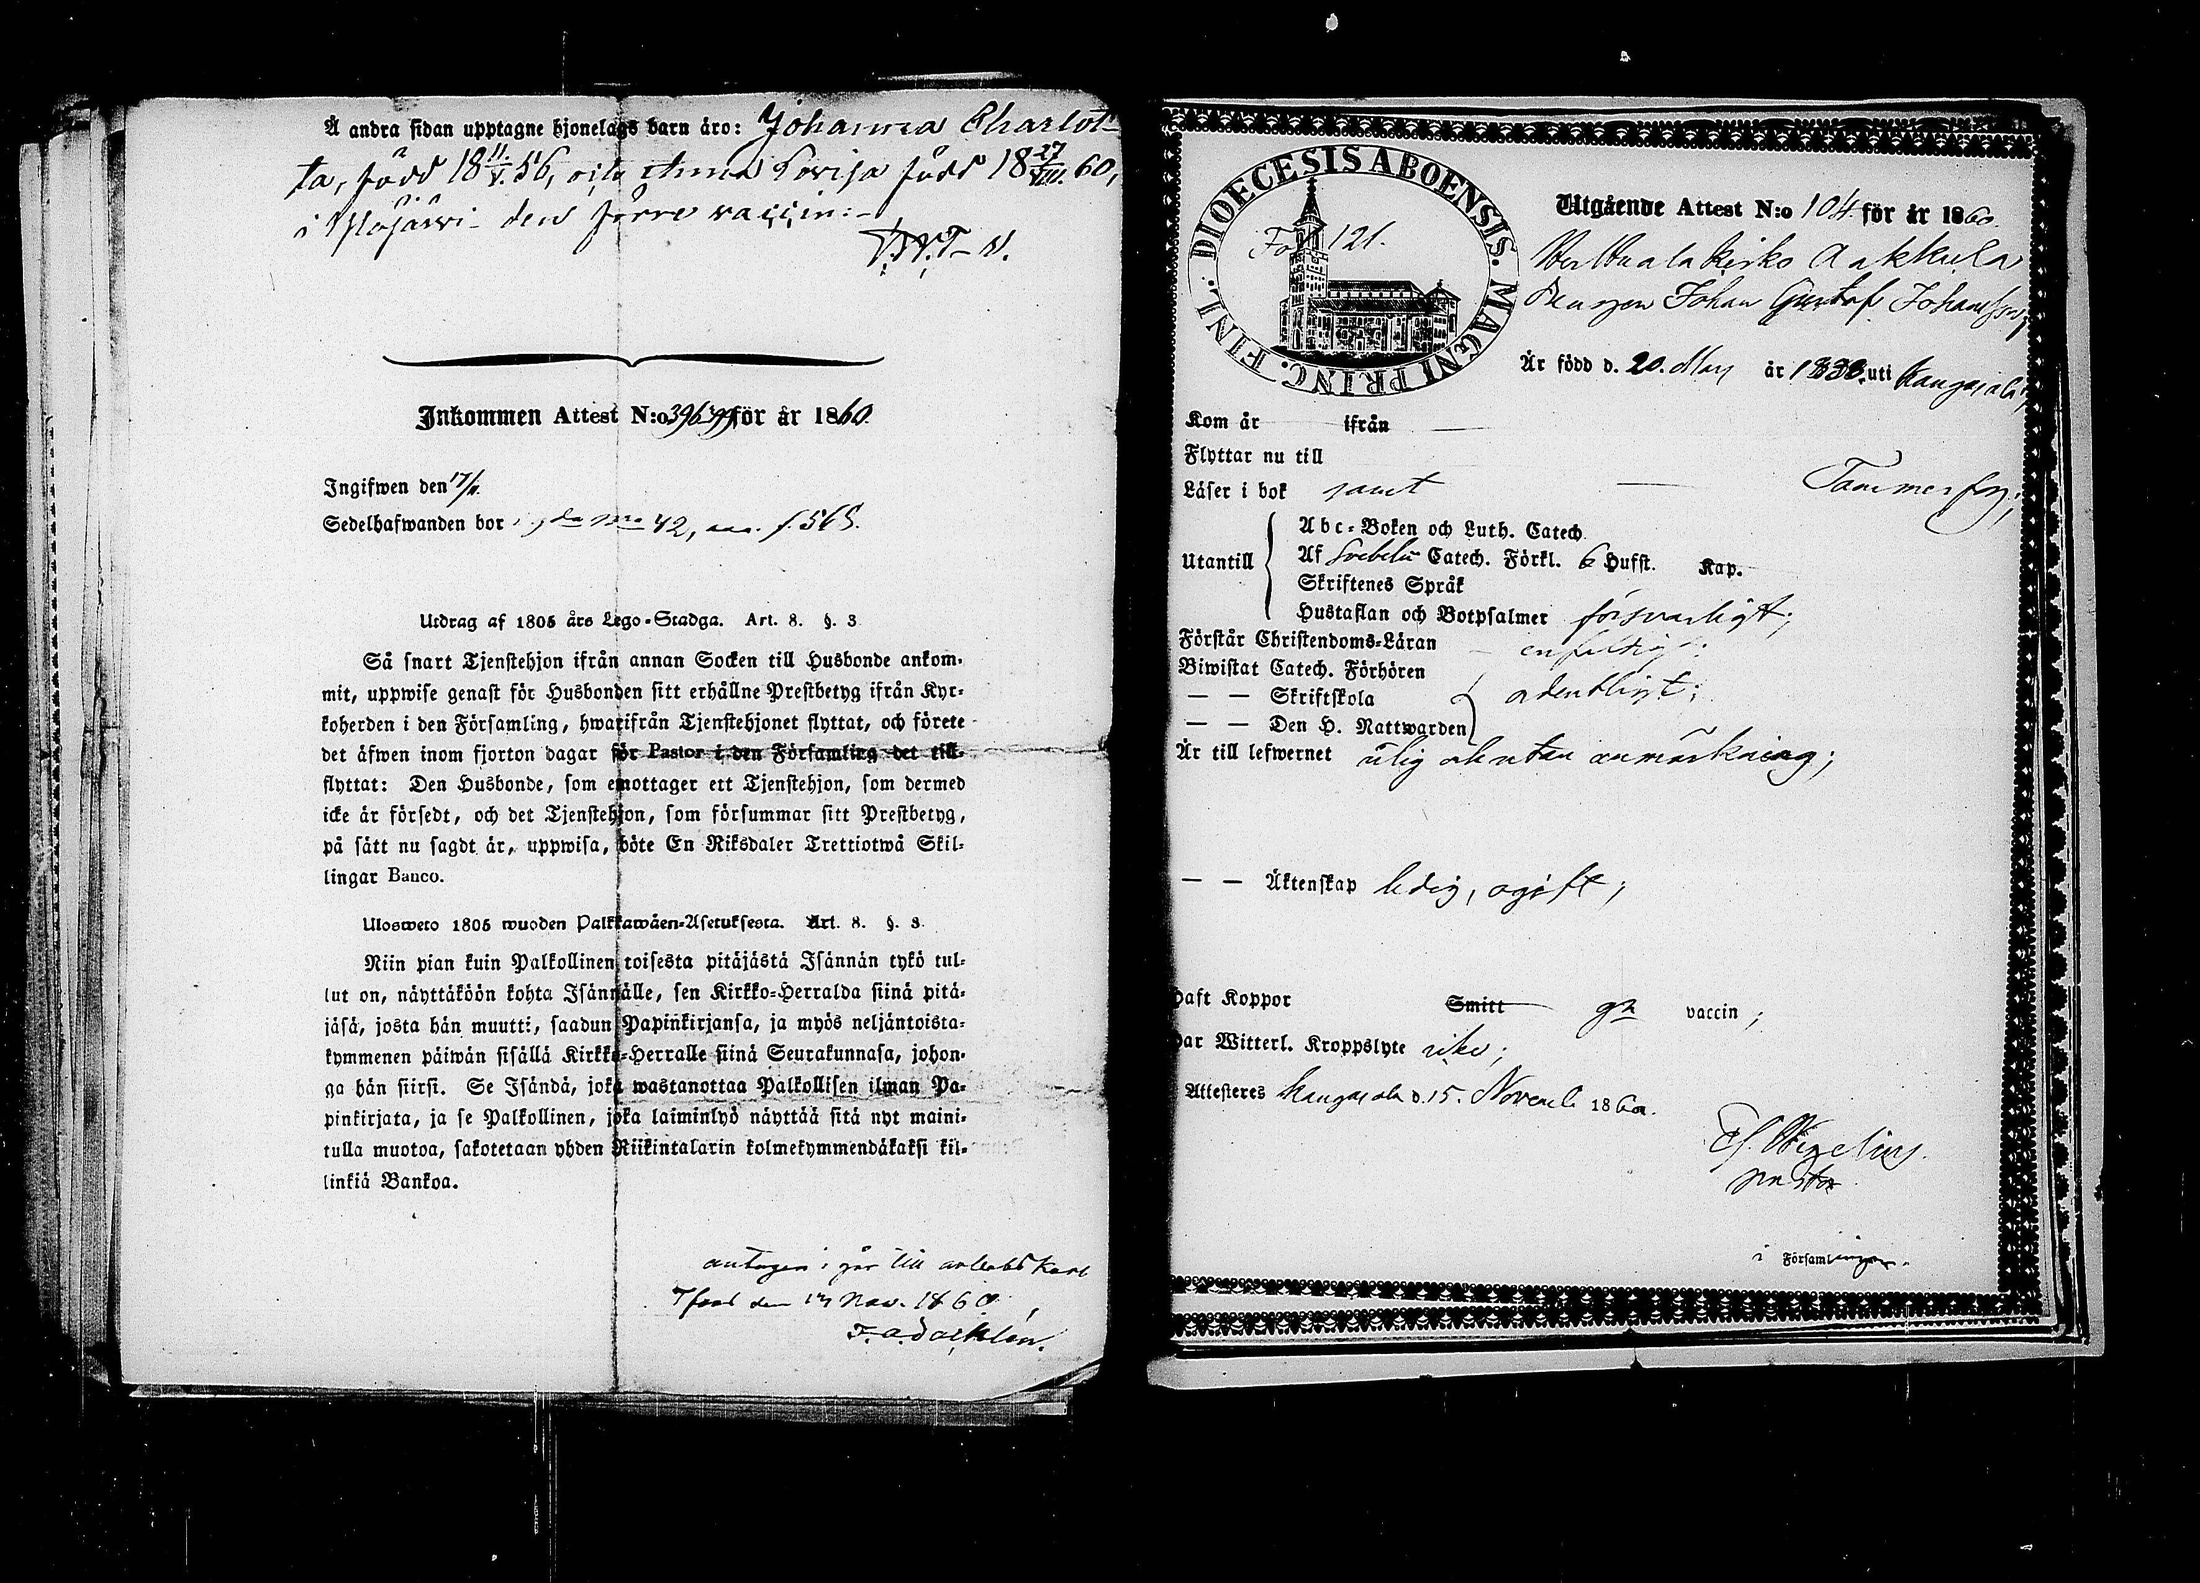 Å andra sidan upptagne hjonelags barn äro: Johanna Charlot-
ta, född 18 11/V. 56, och Anna Lovisa född 18 27/VIII. 60,
i Ylöjärvi - den förre vaccin:-
Inkommen Attest N:o 396 för år 1860.
Ingifwen den 17/11.
Sedelhafwanden bor 42, f. 565.
Utdrag af 1805 års Lego-Stadga. Art. 8. §. 3
Så snart Tjenstehjon ifrån annan Socken till Husbonde ankom-
mit, uppwise genast för Husbonden sitt erhållne Prestbetyg ifrån Kyr-
koherden i den Församling, hwarifrån Tjenstehjonet flyttat, och förete
det äfwen inom fjorton dagar för Pastor i den Församling det till-
flyttat: Den Husbonde, som emottager ett Tjenstehjon, som dermed
icke är försedt, och det Tjenstehjon, som försummar sitt Prestbetyg,
på sätt nu sagdt är, uppwisa, böte En Riksdaler Trettiotwå Skil-
lingar Banco.
Ulosweto 1805 wuoden Palkkawäen-Asetuksesta. Art. 8. §. 3.
Niin pian kuin Palkollinen toisesta pitäjästä Isännän tykö tul-
lut on, näyttäköön kohta Isännälle, sen Kirkko-Herralda siinä pitä-
jäsä, josta hän muutti, saadun Papinkirjansa, ja myös neljäntoista-
kymmenen päiwän sisällä Kirkko-Herralle siinä Seurakunnasa, johon-
ga hän siirsi. Se Isändä, joka wastanottaa Palkollisen ilman Pa-
pinkirjata, ja se Palkollinen, joka laiminlyö näyttää sitä nyt maini-
tulla muotoa, sakotetaan yhden Riikintalarin kolmekymmendäkaksi kil-
linkiä Bankoa.
antagen i går till arbetskarl
Tfors den 17 Nov. 1860.
DIOECESIS ABOENSIS. MAGNI PRINC. FINL.
Fol 121.
Utgående Attest N:o 104 för år 1860.
Aakkula
Drengen Johan Gustaf Johansson,
Är född d. 20. Maj år 1838. uti Kangasala,
Kom år ifrån
Flyttar nu till Tammerfors;
Läser i bok samt
Utantill
Abc-Boken och Luth. Catech.
Af Svebelii Catech. Förkl. 6 Hufst. Kap.
Skriftenes Språk
Hustaflan och Botpsalmer försvarligt;
Förstår Christendoms-Läran enfaldigt;
Biwistat Catech. Förhören
— — Skriftskola ordentligt;
— — Den H. Nattwarden
Är till lefwernet ärlig och utan anmärkning;
— — Äktenskap ledig, ogift;
Haft Koppor Smitt gn vaccin;
Har Witterl. Kroppslyte icke;
Attesteres Kangasala d. 15. Novemb. 1860.
Pastor
i Församlingen.